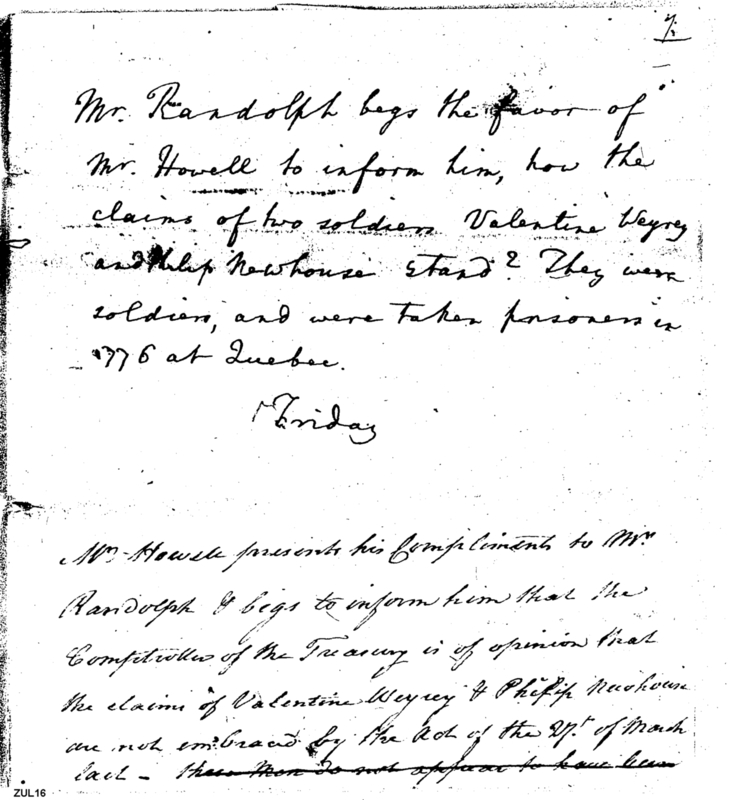 Mr. Randolph begs the favor of
Mr. Howell to inform him, how the
claims of two soldiers Valentine Weyrey
and Philip Newhouse stand? They were
soldiers, and were taken prisoners in
1776 at Quebec.
Friday
Mr. Howell presents his Compliments to Mr.
Randolph & begs to inform him that the
Comptroller of the Treasury is of opinion that
the claims of Valentine Weyrey & Philip Newhouse
are not embraced by the Act of the 27th of March
last - these Men do not appear to have been
ZUL16